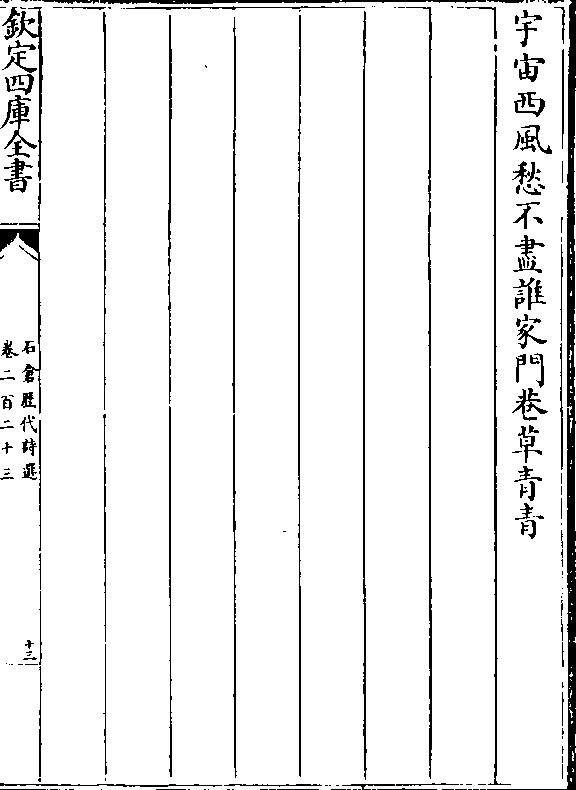 宇宙西風愁不盡誰家門巷草青青
欽定四庫全書
石倉歷代詩選
卷二百二十三
十三